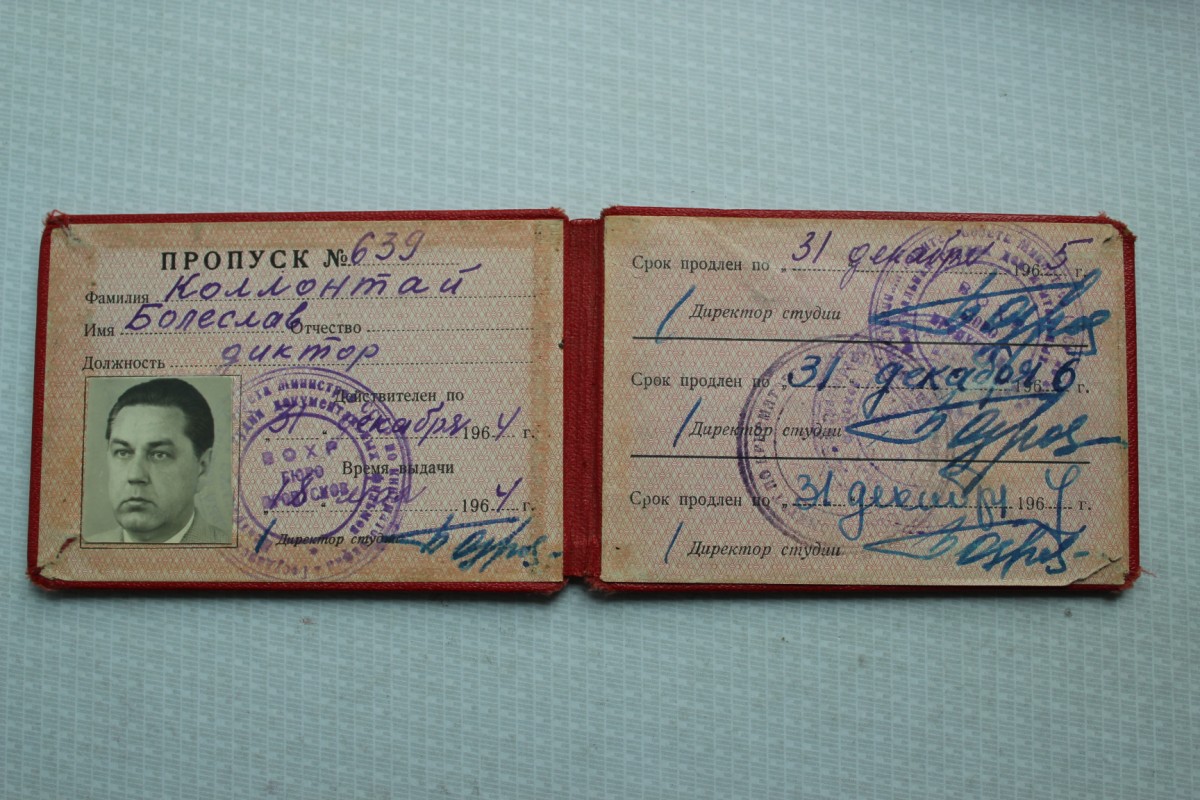 ПРОПУСК № 639
Фамилия Коллонтай
Имя Болеслав Отчество
Должность диктор
Действителен по
"31" декабря 1964 г.
Время выдачи
1964 г.
Директор студии
ВОХР
БЮРО
ПРОПУСКОВ
Срок продлен по "31 декабря 1965 г.
Директор студии
Срок продлен по "31 декабря 1966
Директор студии
Срок продлен по "31 декабря 1967 г.
Директор студии